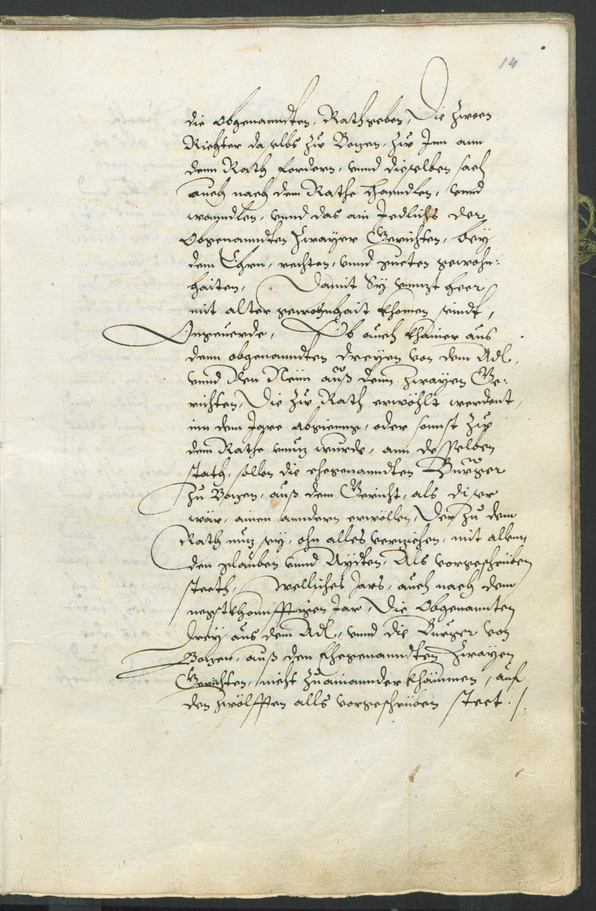 14
die obgenanndten, Rathgeben, Die zween
Richter daselbs zw Bozen, zw Inn ann
dem Rath fordern, vnnd dieselben sach
auch nach dem Rathe hanndlen, vnnd
wanndlen, vnnd das ain Jedlichs der
obgenanndten zwayer Gerichten, bey
dem Ehrn, rechten, vnnd gueten gewohn:
haiten, Damit Sy heer
mit alter gewohnhait khomen sindt,
Ongeuerde, Ob auch khainer aus
denn obgenanndten dreyen von dem Adl,
vnnd den Neün auß denn zwayen Ge:
richten, Die zw Rath erwöhlt werdent,
inn dem Jare abgienng, oder sonnst zw
dem Rathe vnnuz wurde, ann desselben
statt, sollen die ehegenanndten Burger
zu Bozen, auß dem Gericht, als diser
wär, ainen anndern erwöllen, Der zu dem
Rath nuz sey, ohn alles verziehen, mit allem
den glauben vnnd Aydten, Als vorgeschriben
steeth, Welliches Jars, auch nach dem
negstkhomfftigen Jar Die Obgenannten
Drey, aus dem Adl, vnnd die Burger von
Bozen, auß den Ehegenanndten zwayen
Gerichten, nicht zuainannder khämmen, auf
den zwölfften alls vorgeschriben steet ./.